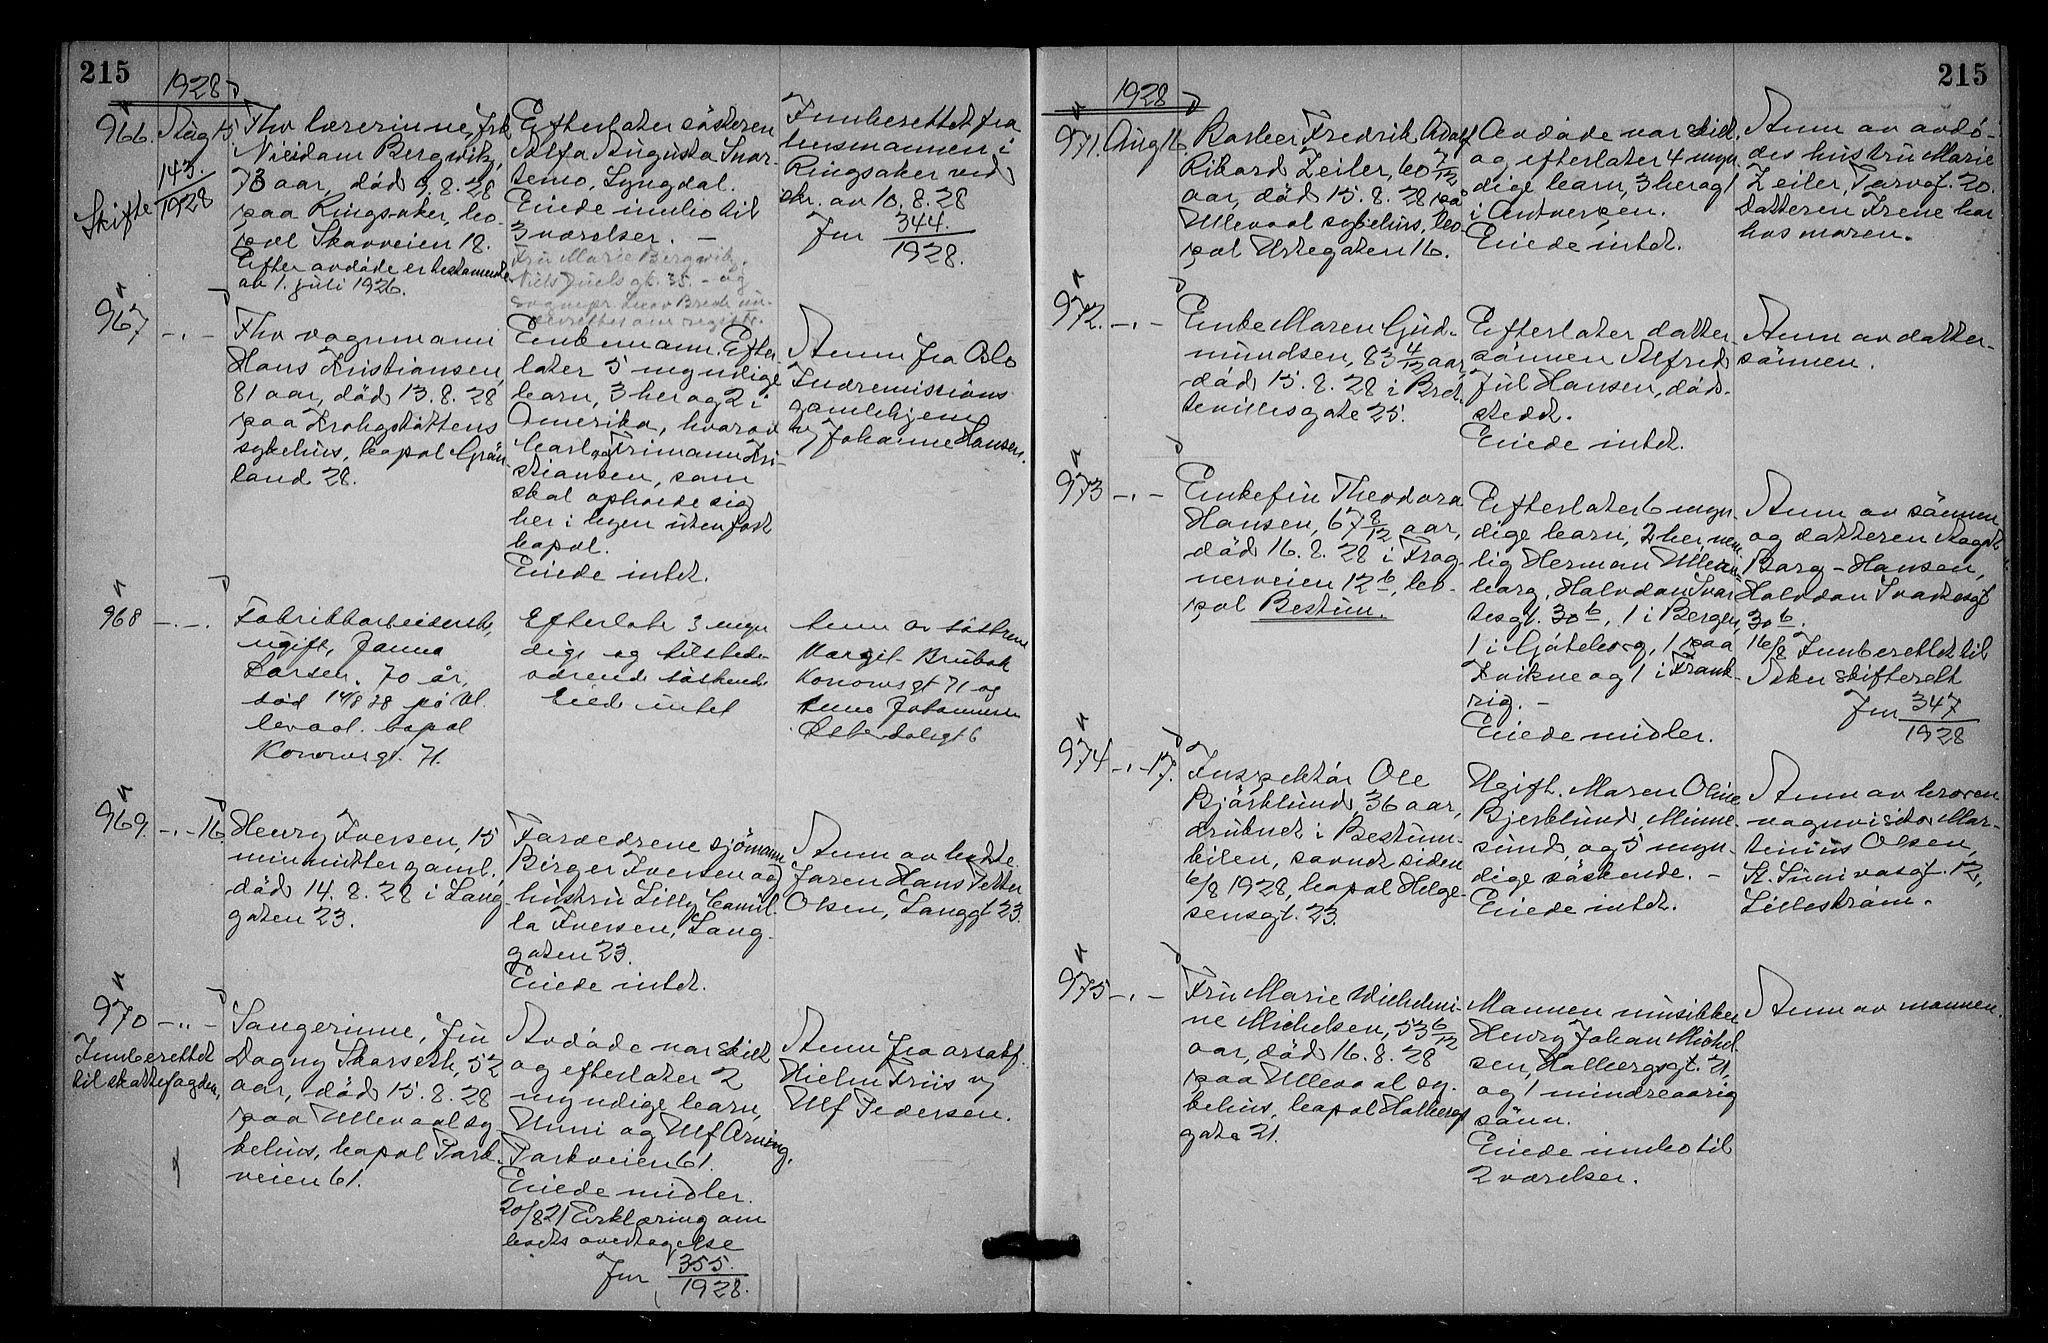 215
1928
966. Aug 15.
143.
1928
Skifte
Fhv lærerinne, frk
Bergwitz,
73 aar, död 9.8.28
paa Ringsaker, bo-
pæl Skovveien 18.
Efter avdöde er testamente
av 1. juli 1926.
Efterlater søsteren
Alfa Augusta Snar-
temo, Lyngdal.
Eiede innbo til
3 værelser. -
Fru Marie Bergwitz,
Niels Juels gt. 35. - og
Innberettet fra
lensmannen i
Ringsaker ved
skr. av 10.8.28
Jnr 344.
1928.
967 -.-
Fhv vognmann
Hans Kristiansen,
81 aar, död 13.8.28
paa Krohgstöttens
sykehus, bopæl Grön-
land 28.
Enkemann. Efter-
later 5 myndige
barn, 3 her og 2 i
Amerika, hvorav
Carl og Trimann Kri-
stiansen, som
skal opholde sig
her i byen uten fast
bopæl.
Eiede intet.
Anm fra Oslo
Indremissions
gamlehjem
v/ Johanne Hansen.
968 -.-.
Fabrikkarbeiderske,
ugift, Janna
Larsen. 70 år,
död 14/8 28 på Ul-
levaal. bopæl
Konowsgt. 71.
Efterlot 3 myn
dige og tilstede-
værende söskende
Eiede intet
Anm av söstrene
Margit Brubak
Konowsgt 71 og
Anna Johannesen
Österdalsgt 6
969. -.-16.
Henry Iversen, 15
minutter gaml.,
död 14.8.28 i Lang-
gaten 23.
Forældrene sjömann
Birger Iversen og
hustru Lilly Camil-
la Iversen, Lang-
gaten 23.
Eiede intet.
Anm av beste-
faren Hans Petter
Olsen, Langgt 23.
970 -.-
Innberettet
til skattefogden,
Sangerinne, fru
Dagny Skarseth, 52
aar, död 15.8.28
paa Ullevaal sy-
kehus, bopæl Park-
veien 61.
Avdöde var skilt
og efterlater 2
myndige barn,
Unni og Ulf Arning,
Parkveien 61.
Eiede midler.
20/8 21 Erklæring om
boets overtagelse
Jnr 355.
1928.
Anm fra orsakf.
Hielm Friis v/
Ulf Pedersen.
215
1928
971. Aug 16.
Barber Fredrik Adolf
Rikard Zeiler, 60 7/12
aar, död 15.8.28 på
Ullevaal sykehus, bo-
pæl Urtegaten 16.
Avdöde var skilt
og efterlater 4 myn-
dige barn, 3 her og 1
i Antverpen.
Eiede intet.
Anm av avdö-
des hustru Marie
Zeiler, Torvgt. 20.
Datteren Irene bor
hos moren.
972. -.-
Enke Maren Gud-
mundsen, 83 4/12 aar,
död 15.8.28 i Bret-
tevillesgate 25.
Efterlater datter-
sönnen Alfred
Jul Hansen, död-
stedet.
Eiede intet.
Anm av datter-
sönnen.
973 -.-
Enkefru Theodora
Hansen, 67 8/12 aar,
död 16.8.28 i Frog-
nerveien 12 b, bo-
pæl Bestum.
Efterlater 6 myn-
dige barn, 2 her, nem-
lig Herman Ullern-
borg, Halvdan Svar
tesgt. 30 b, 1 i Bergen,
1 i Göteborg, 1 paa
Kvikne og 1 i Frank-
rig. -
Eiede midler.
Anm av sönnen
og datteren Aagot
Borg-Hansen,
Halvdan Svartesgt
30 b.
16/8 Innberettet til
Aker skifterett
Jnr 347
1928
974 -.-17.
Inspektör Ole
Bjärklund, 36 aar,
druknet i Bestum-
kilen, savnet siden
6/8 1928, bopæl Helge-
sensgt. 23.
Ugift. Moren Oline
Bjerklund, Minne-
sund, og 5 myn-
dige söskende. -
Eiede intet.
Anm av broren
vognvisitör Mar-
tinius Olsen,
St. Sunnivasgt. 12,
Lilleström.
975 -.-
Fru Marie Wilhelmi-
ne Michelsen, 53 6/12
aar, död 16.8.28
paa Ullevaal sy-
kehus, bopæl Holbergs
gate 21.
Mannen musikker
Henry Johan Michel-
sen, Holbergsgt. 21,
og 1 mindreaarig
sönn.
Eiede innbo til
2 værelser.
Anm av mannen.